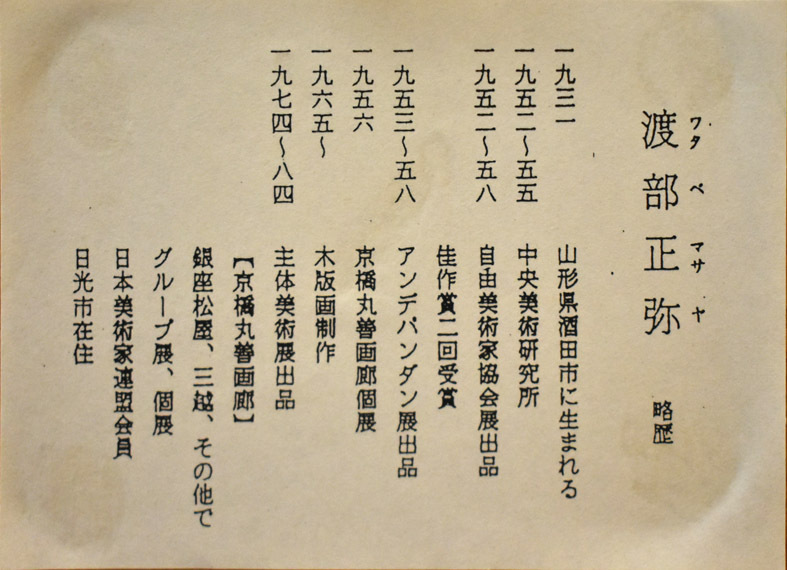 渡部正弥 略歴
ワタ ベ マサ ヤ
一九三一 山形県酒田市に生まれる
一九五二〜五五 中央美術研究所
一九五二〜五八 自由美術家協会展出品
佳作賞二回受賞
一九五三〜五八 アンデパンダン展出品
一九五六 京橋丸善画廊個展
一九六五〜 木版画制作
一九七四〜八四 主体美術展出品
【京橋丸善画廊】
銀座松屋、三越、その他で
グループ展、個展
日本美術家連盟会員
日光市在住